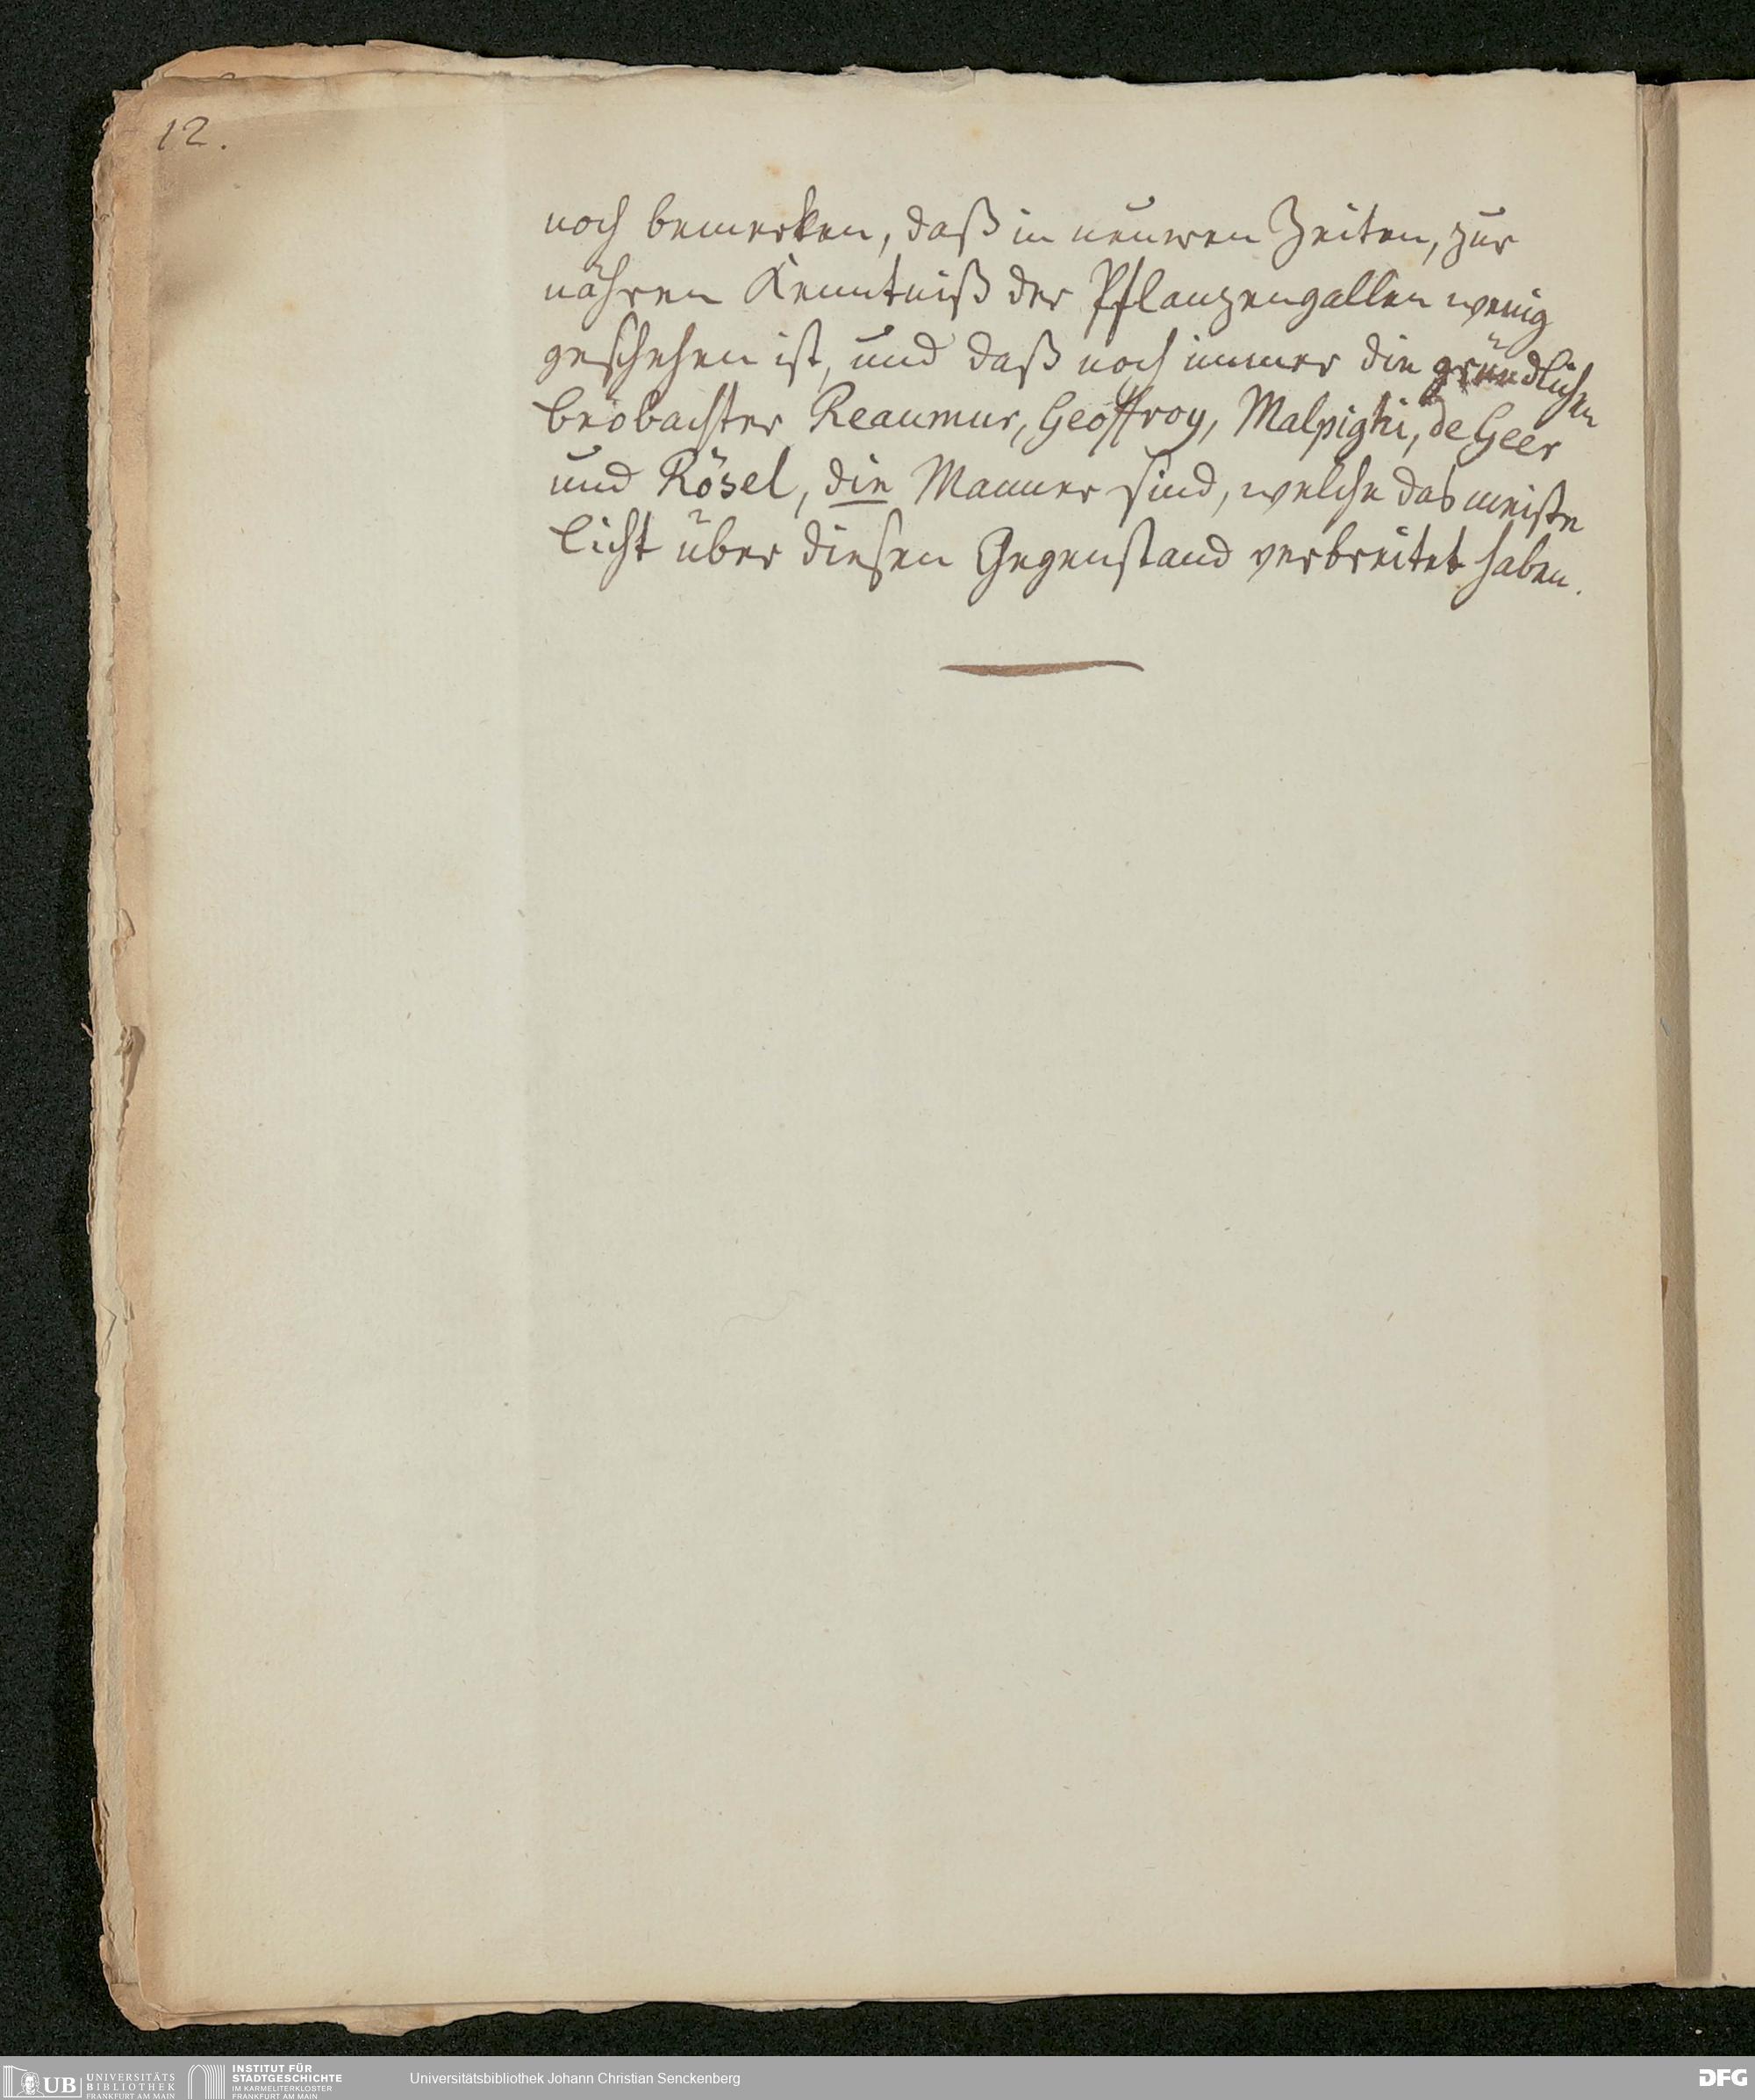 12.
noch bemerken, daß in neueren Zeiten, zur
nähren Kenntniß der Pflanzengallen wenig
geschehen ist, und daß noch immer die gründlichen
beobachter Reaumur, Geoffroy, Malpighi, de Geer
und Rösel, die Männer sind, welche das meiste
licht über diesen Gegenstand verbreitet haben.
UB UNIVERSITÄTS
BIBLIOTHEK
FRANKFURT AM MAIN
INSTITUT FÜR
STADTGESCHICHTE
IM KARMELITERKLOSTER
FRANKFURT AM MAIN
Universitätsbibliothek Johann Christian Senckenberg
DFG